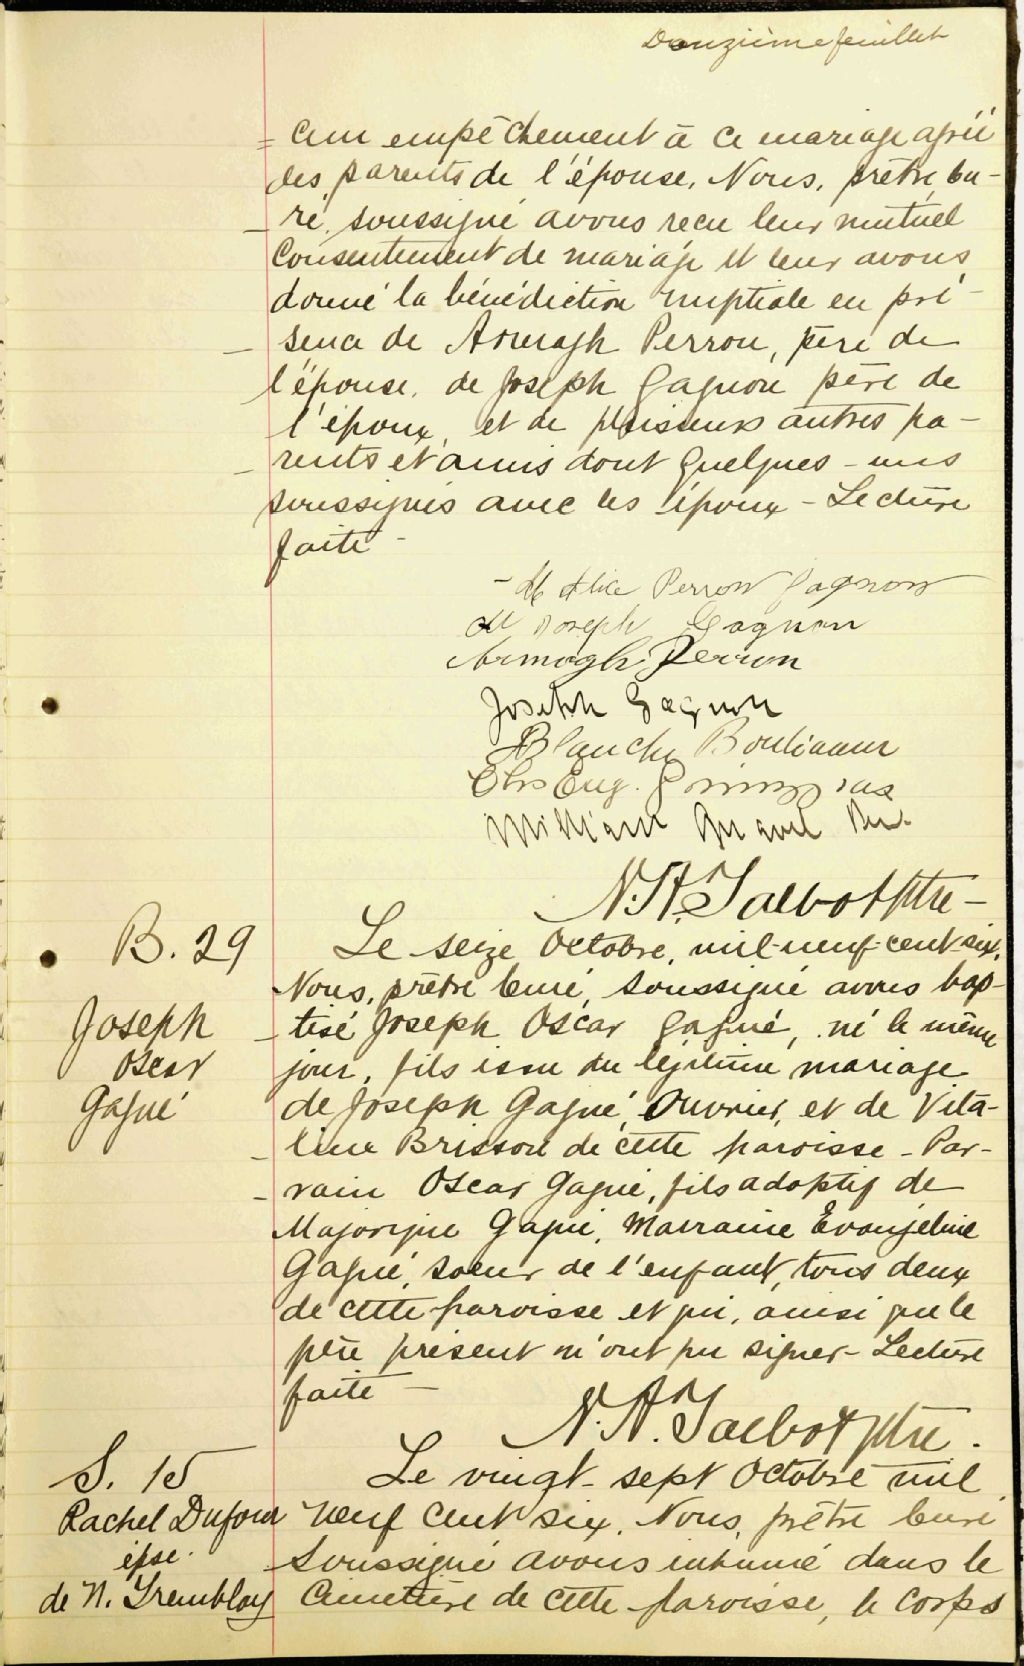 Douzième feuillet
= cun empêchement à ce mariage agréé
des parents de l'épouse, Nous, prêtre, cu-
- ré, soussigné avons reçu leur mutuel
consentement de mariage et leur avons
donné la bénédiction nuptiale en pré-
- sence de Armagh Perron, père de
l'épouse, de Joseph Gagnon père de
l'époux, et de plusieurs autres pa-
- rents et amis dont quelques-uns
soussignés avec les époux - Lecture
faite -
- M Alice Perron Gagnon
M Joseph Gagnon
Armagh Perron
Joseph Gagnon
Blanche Boulianne
Chs Eug.
William
N. A. Talbot Ptre -
B. 29
Joseph
Oscar
Gagné
Le seize Octobre, mil-neuf-cent-six,
Nous, prêtre Curé, soussigné avons bap-
- tisé Joseph Oscar Gagné, né le même
jour, fils issu du légitime mariage
de Joseph Gagné, Ouvrier, et de Vita-
- line Brisson de cette paroisse - Par-
- rain Oscar Gagné, fils adoptif de
Majorique Gagné, Marraine Evangeline
Gagné, soeur de l'enfant, tous deux
de cette paroisse et qui, ainsi que le
père présent n'ont pu signer - Lecture
faite -
N. A. Talbot Ptre.
S. 15
Rachel Dufour
épse.
de N. Tremblay
Le vingt-sept Octobre mil
neuf cent six, Nous, prêtre Curé
soussigné avons inhumé dans le
Cimetière de cette paroisse, le corps